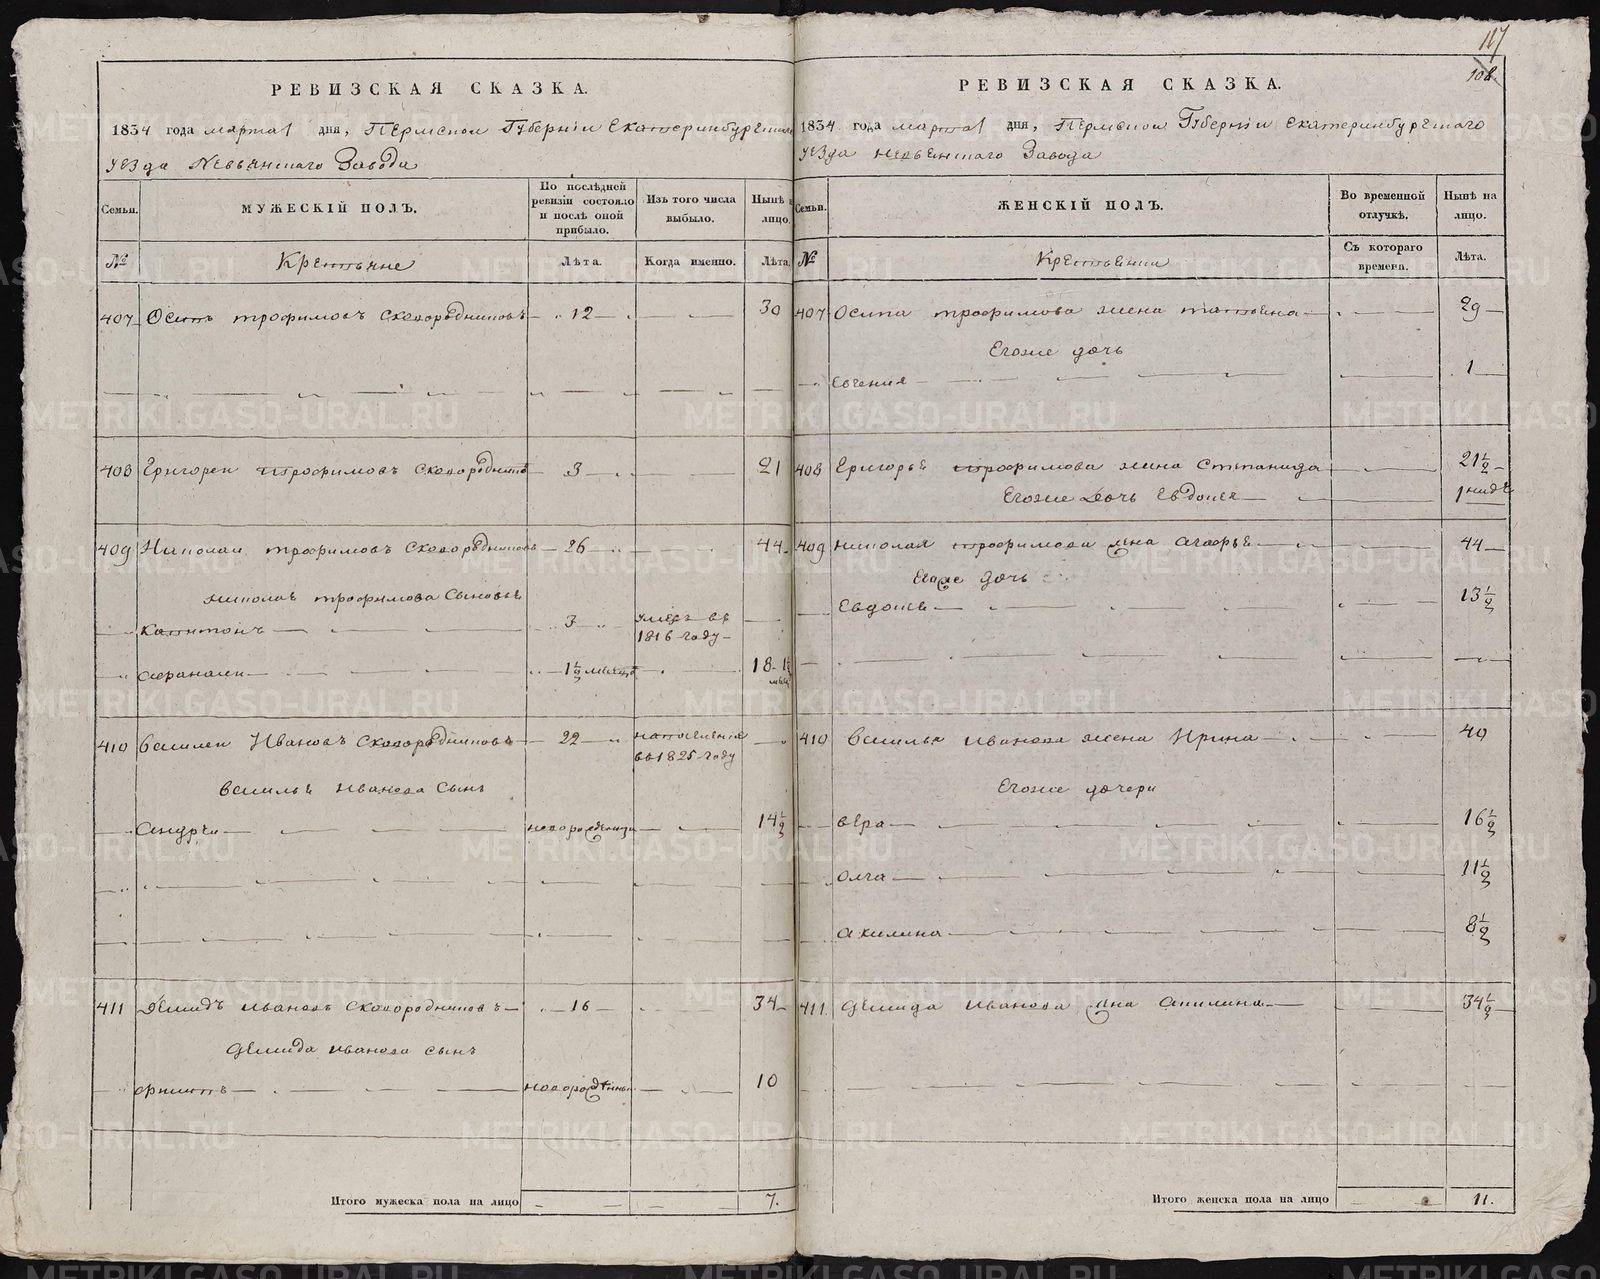 117
108
РЕВИЗСКАЯ СКАЗКА.
1834 года марта 1 дня, Пермской Губерніи Екатеринбургскаго
уезда Невьянскаго Завода
Семьи.
МУЖЕСКІЙ ПОЛЪ.
По послѣдней ревизіи состояло и послѣ оной прибыло.
Изъ того числа выбыло.
Нынѣ лицо.
№ Крестьяне Лѣта. Когда именно. Лѣта.
407 Осипъ трофимовъ Сковородниковъ 12 30
408 Григореи трофимовъ Сковородников 3 21
409 Николаи трофимовъ Сковородниковъ 26 44
николая трофимова Сыновья
Капитонъ 3 умеръ въ 1816 году
афанасеи 1½ месяца 18 1½ мес
410 василеи Ивановъ Сковородниковъ 22 вв 1825 году
василья иванова Сынъ
Андреи новорожденои 14½
411 Демидъ ивановъ Сковородниковъ 16 34
Демида иванова сынъ
новорожденны 10
Итого мужеска пола на лицо 7.
РЕВИЗСКАЯ СКАЗКА.
1834 года марта 1 дня, Пермской Губерніи екатеринбургскаго
уезда невьянскаго Завода
Семьи.
ЖЕНСКІЙ ПОЛЪ.
Во временной отлучкѣ.
Нынѣ на лицо.
№ Съ котораго времени. Лѣта.
407 Осипа трофимова жена татьяна 29
Егоже дочь
Евгения 1
408 Григорья трофимова жена Степанида 21½
Егоже Дочь Евдокея 1 неде
409 николая трофимова жна агафья 44
Егоже дочь
Евдокея 13½
410 василья иванова жена Ирина 40
Егоже дочери
вера 16½
олга 11½
акилина 8½
411 Демида иванова жна акилина 34½
Итого женска пола на лицо 11.